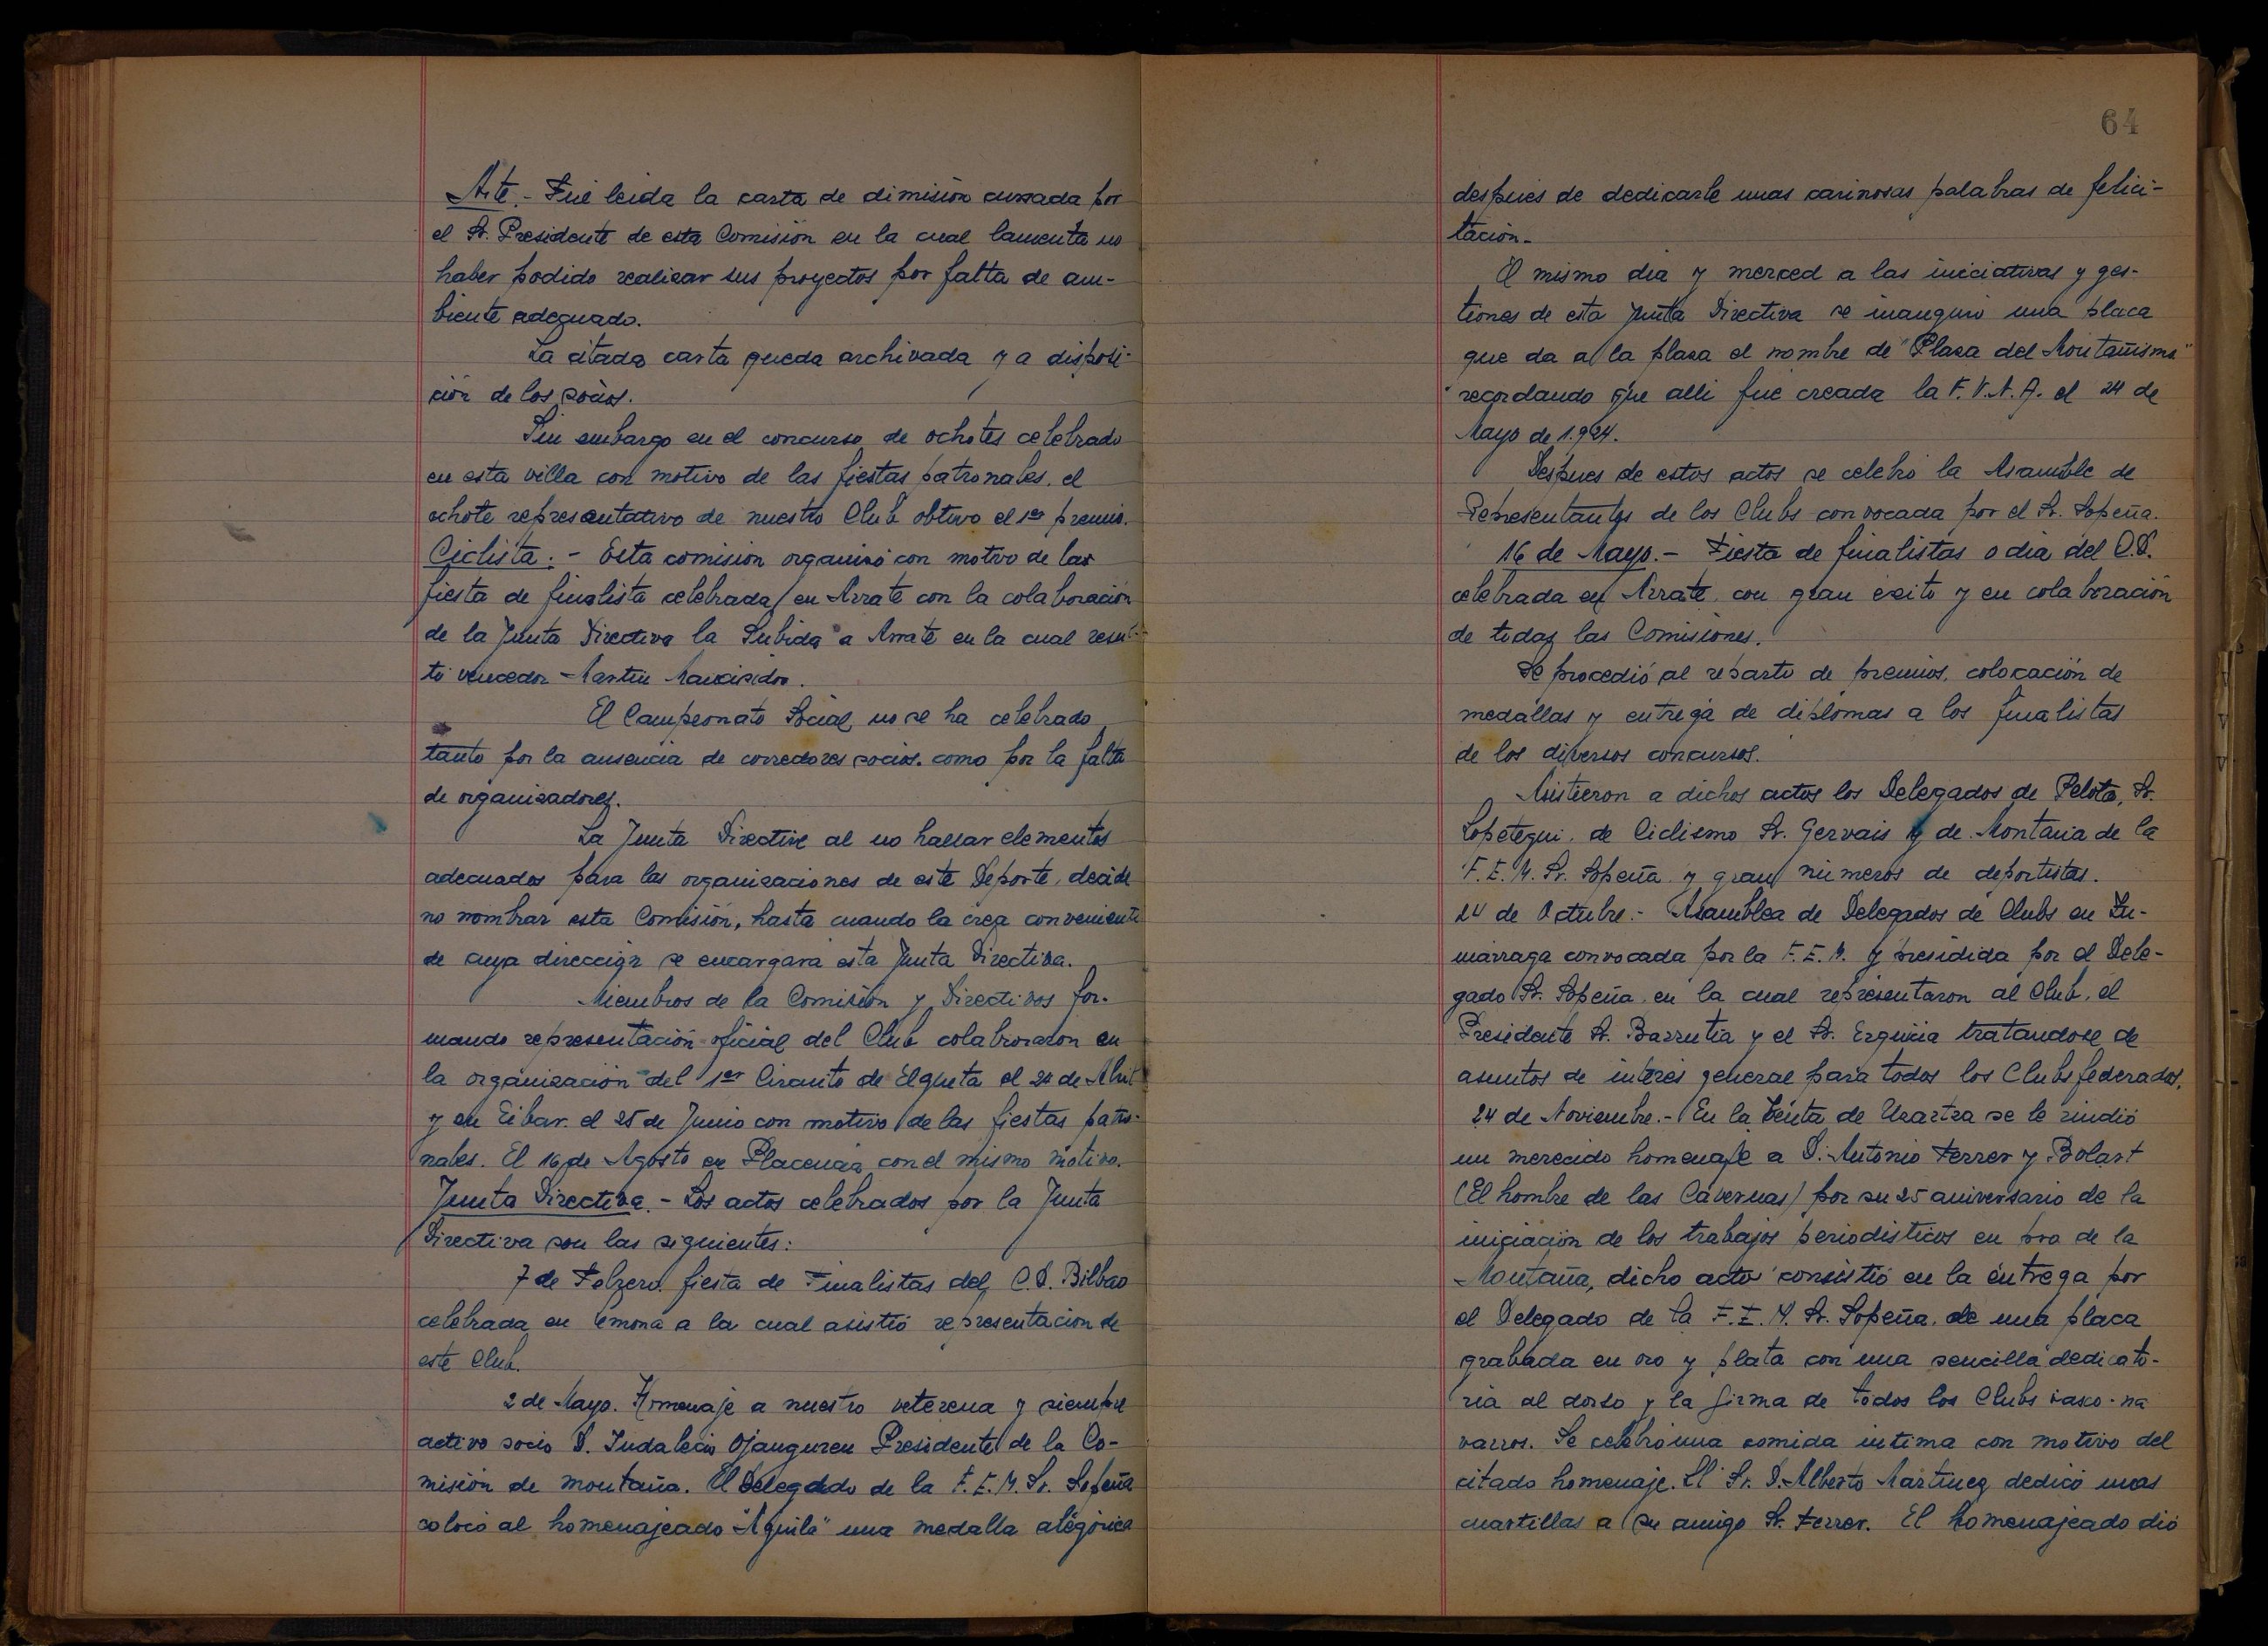 Arte.- Fué leida la carta de dimisión cursada por
el Sr. Presidente de esta Comisión en la cual lamenta no
haber podido realizar sus proyectos por falta de am-
biente adecuado.
La citada carta queda archivada y a disposi-
ción de los socios.
Sin embargo en el concurso de ochotes celebrado
en esta villa con motivo de las fiestas patronales, el
ochote representativo de nuestro Club obtivo el 1er premio.
Ciclista.- Esta comisión organizó con motivo de las
fiesta de finalista celebrada en Arrate con la colaboración
de la Junta Directiva la Subida a Arrate en la cual resul-
tó vencedor Martin
El Campeonato Social no se ha celebrado
tanto por la ausencia de corredores socios. como por la falta
de organizadores.
La Junta Directive al no hallar elementos
adecuados para las organizaciones de este Deporte, decide
no nombrar esta Comisión, hasta cuando la crea conveniente
de cuya dirección se encargara esta Junta Directiva.
Miembros de la Comisión y Directivos for-
mando representación oficial del Club colaboraron en
la organización del 1er Circuito de Elgueta el 24 de Abril
y en Eibar el 25 de Junio con motivo de las fiestas patro-
nales. El 16 de Agosto en Placencia con el mismo motivo.
Junta Directiva.- Los actos celebrados por la Junta
Directiva son las siguientes:
7 de Febrero fiesta de Finalistas del C.D. Bilbao
celebrada en Lemona a la cual asistió representacion de
este Club.
2 de Mayo. Homenaje a nuestro veterena y siempre
activo socio D. Indalecio Ojanguren Presidente de la Co-
misión de montaña. El Delegado de la F.E.M. Sr. Sopeña
colocó al homenajeado "Aguila" una medalla alegórica
64
despues de dedicarle unas cariñosas palabras de felici-
tación.
El mismo dia y merced a las iniciativas y ges-
tiones de esta Junta Directiva se inauguró una placa
que da a la plaza el nombre de "Plaza del Montañismo"
recordando que alli fue creada la F.V.N.A. el 24 de
Mayo de 1.924.
Despues de estos actos se celebró la Asamble de
Representantes de los Clubs convocada por el Sr. Sopeña.
16 de Mayo.- Fiesta de finalistas o dia del C.D.
celebrada en Arrate con gran exito y en colaboración
de todas las Comisiones.
Se procedió al reparto de premios, colocación de
medallas y entrega de diplomas a los finalistas
de los diversos concursos.
Asistieron a dichos actos los Delegados de Pelota, Sr.
Lopetegui, de Ciclismo Sr. Gervais y de Montaña de la
F.E.M. Sr. Sopeña y gran números de deportistas.
24 de Octubre.- Asamblea de Delegados de Clubs en Zu-
márraga convocada por la F.E.M. y presidida por el Dele-
gado Sr. Sopeña en la cual representaron al Club, el
Presidente Sr. Barrutia y el Sr. Erquicia tratandose de
asuntos de interés general para todos los Clubs federados.
24 de Noviembre.- En la Venta de Uzartza se le rindió
un merecido homenaje a D. Antonio Ferrer y Bolart
(El hombre de las Cavernas) por su 25 aniversario de la
iniciación de los trabajos periodisticos en pro de la
Montaña, dicho acto consistió en la entrega por
el Delegado de la F.E.M. Sr. Sopeña, de una placa
grabada en oro y plata con una sencilla dedicato-
ria al dorso y la firma de todos los Clubs vasco-na
varros. Se celebró una comida intima con motivo del
citado homenaje. El Sr. D. Alberto Martinez dedicó unas
cuartillas a su amigo Sr. Ferrer. El homenajeado dió